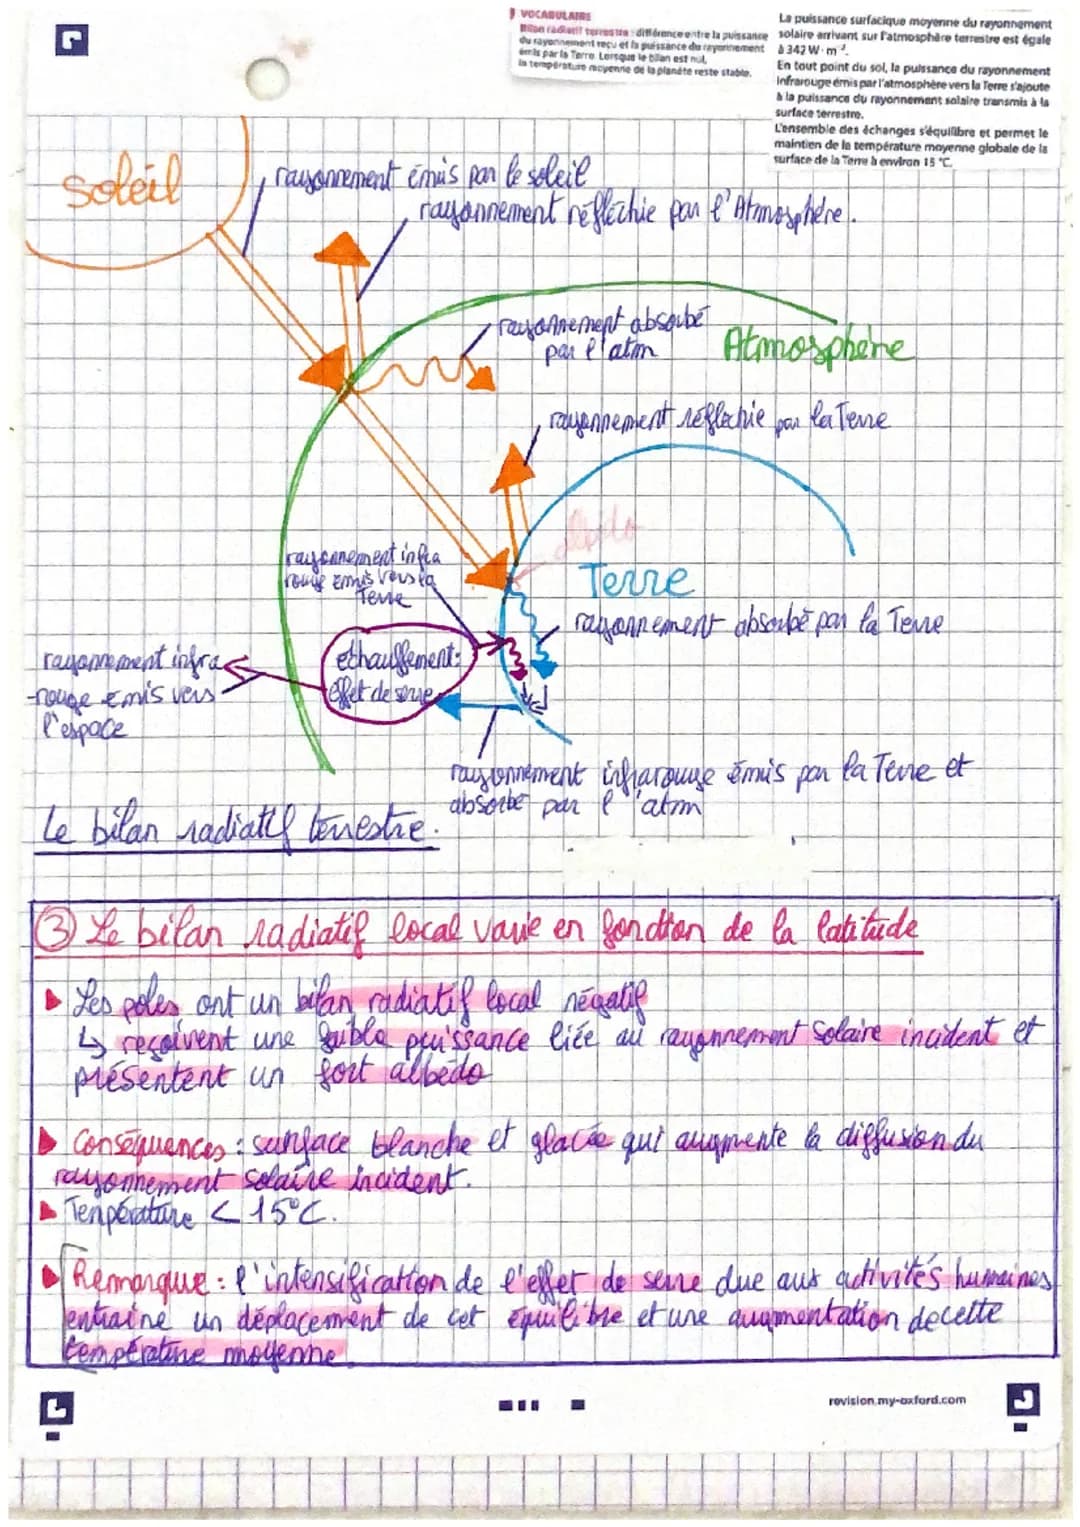 VOCABULAIRE
Bilan radiatif terrestre : différence entre la puissance
du rayonnement reçu et la puissance du rayonnement
émis par la Terre. Lorsque le bilan est nul,
la température moyenne de la planète reste stable.
La puissance surfacique moyenne du rayonnement
solaire arrivant sur l'atmosphère terrestre est égale
à 342 W·m⁻².
En tout point du sol, la puissance du rayonnement
infrarouge émis par l'atmosphère vers la Terre s'ajoute
à la puissance du rayonnement solaire transmis à la
surface terrestre.
L'ensemble des échanges s'équilibre et permet le
maintien de la température moyenne globale de la
surface de la Terre à environ 15 °C.
Soleil
rayonnement émis par le soleil
rayonnement réflechie par l'Atmosphère.
rayonnement absorbé
par l'atm
Atmosphère
rayonnement réflechie par la Terre
albédo
rayonnement infra
rouge émis vers la
Terre
Terre
rayonnement absorbé par la Terre
echauffement:
effet de serre
rayonnement infra
-rouge émis vers
l'espace
rayonnement infrarouge émis par la Terre et
absorbé par l'atm
Le bilan radiatif terrestre.
③ Le bilan radiatif local varie en fonction de la latitude
▸ Les poles ont un bilan radiatif local négatif
↳ reçoivent une faible puissance liée au rayonnement solaire incident et
présentent un fort albédo
▸ Conséquences : surface blanche et glacée qui augmente la diffusion du
rayonnement solaire incident.
▸ Température < 15°C.
▸ Remarque : l'intensification de l'effet de serre due aux activités humaines
entraîne un déplacement de cet équilibre et une augmentation de cette
température moyenne.
revision.my-oxford.com